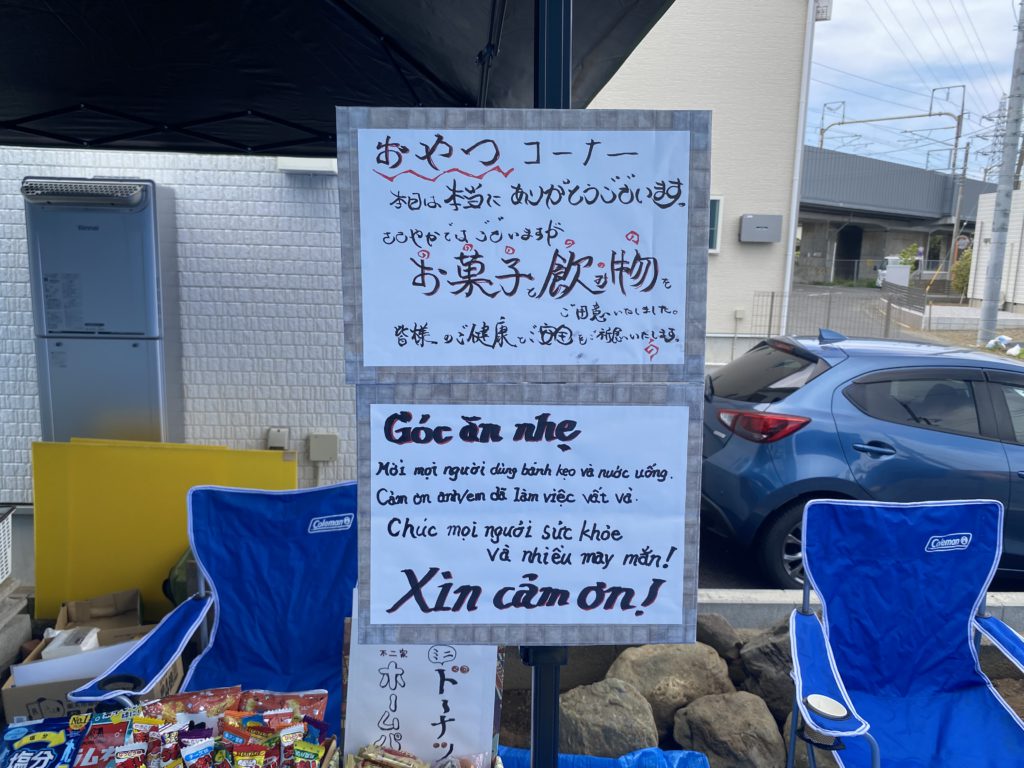 おやつ コーナー
本日は本当にありがとうございます。
ささやかではございますが
お菓子と飲み物を
ご用意いたしました。
皆様のご健康とご安全をご祈念いたします。
Góc ăn nhẹ
Mời mọi người dùng bánh kẹo và nước uống.
Cảm ơn anh/em đã làm việc vất vả.
Chúc mọi người sức khỏe
và nhiều may mắn!
Xin cảm ơn!
Rinnai
Coleman
Coleman
ミニ
ドーナツ
不二家
ホームパ
No.1
塩分